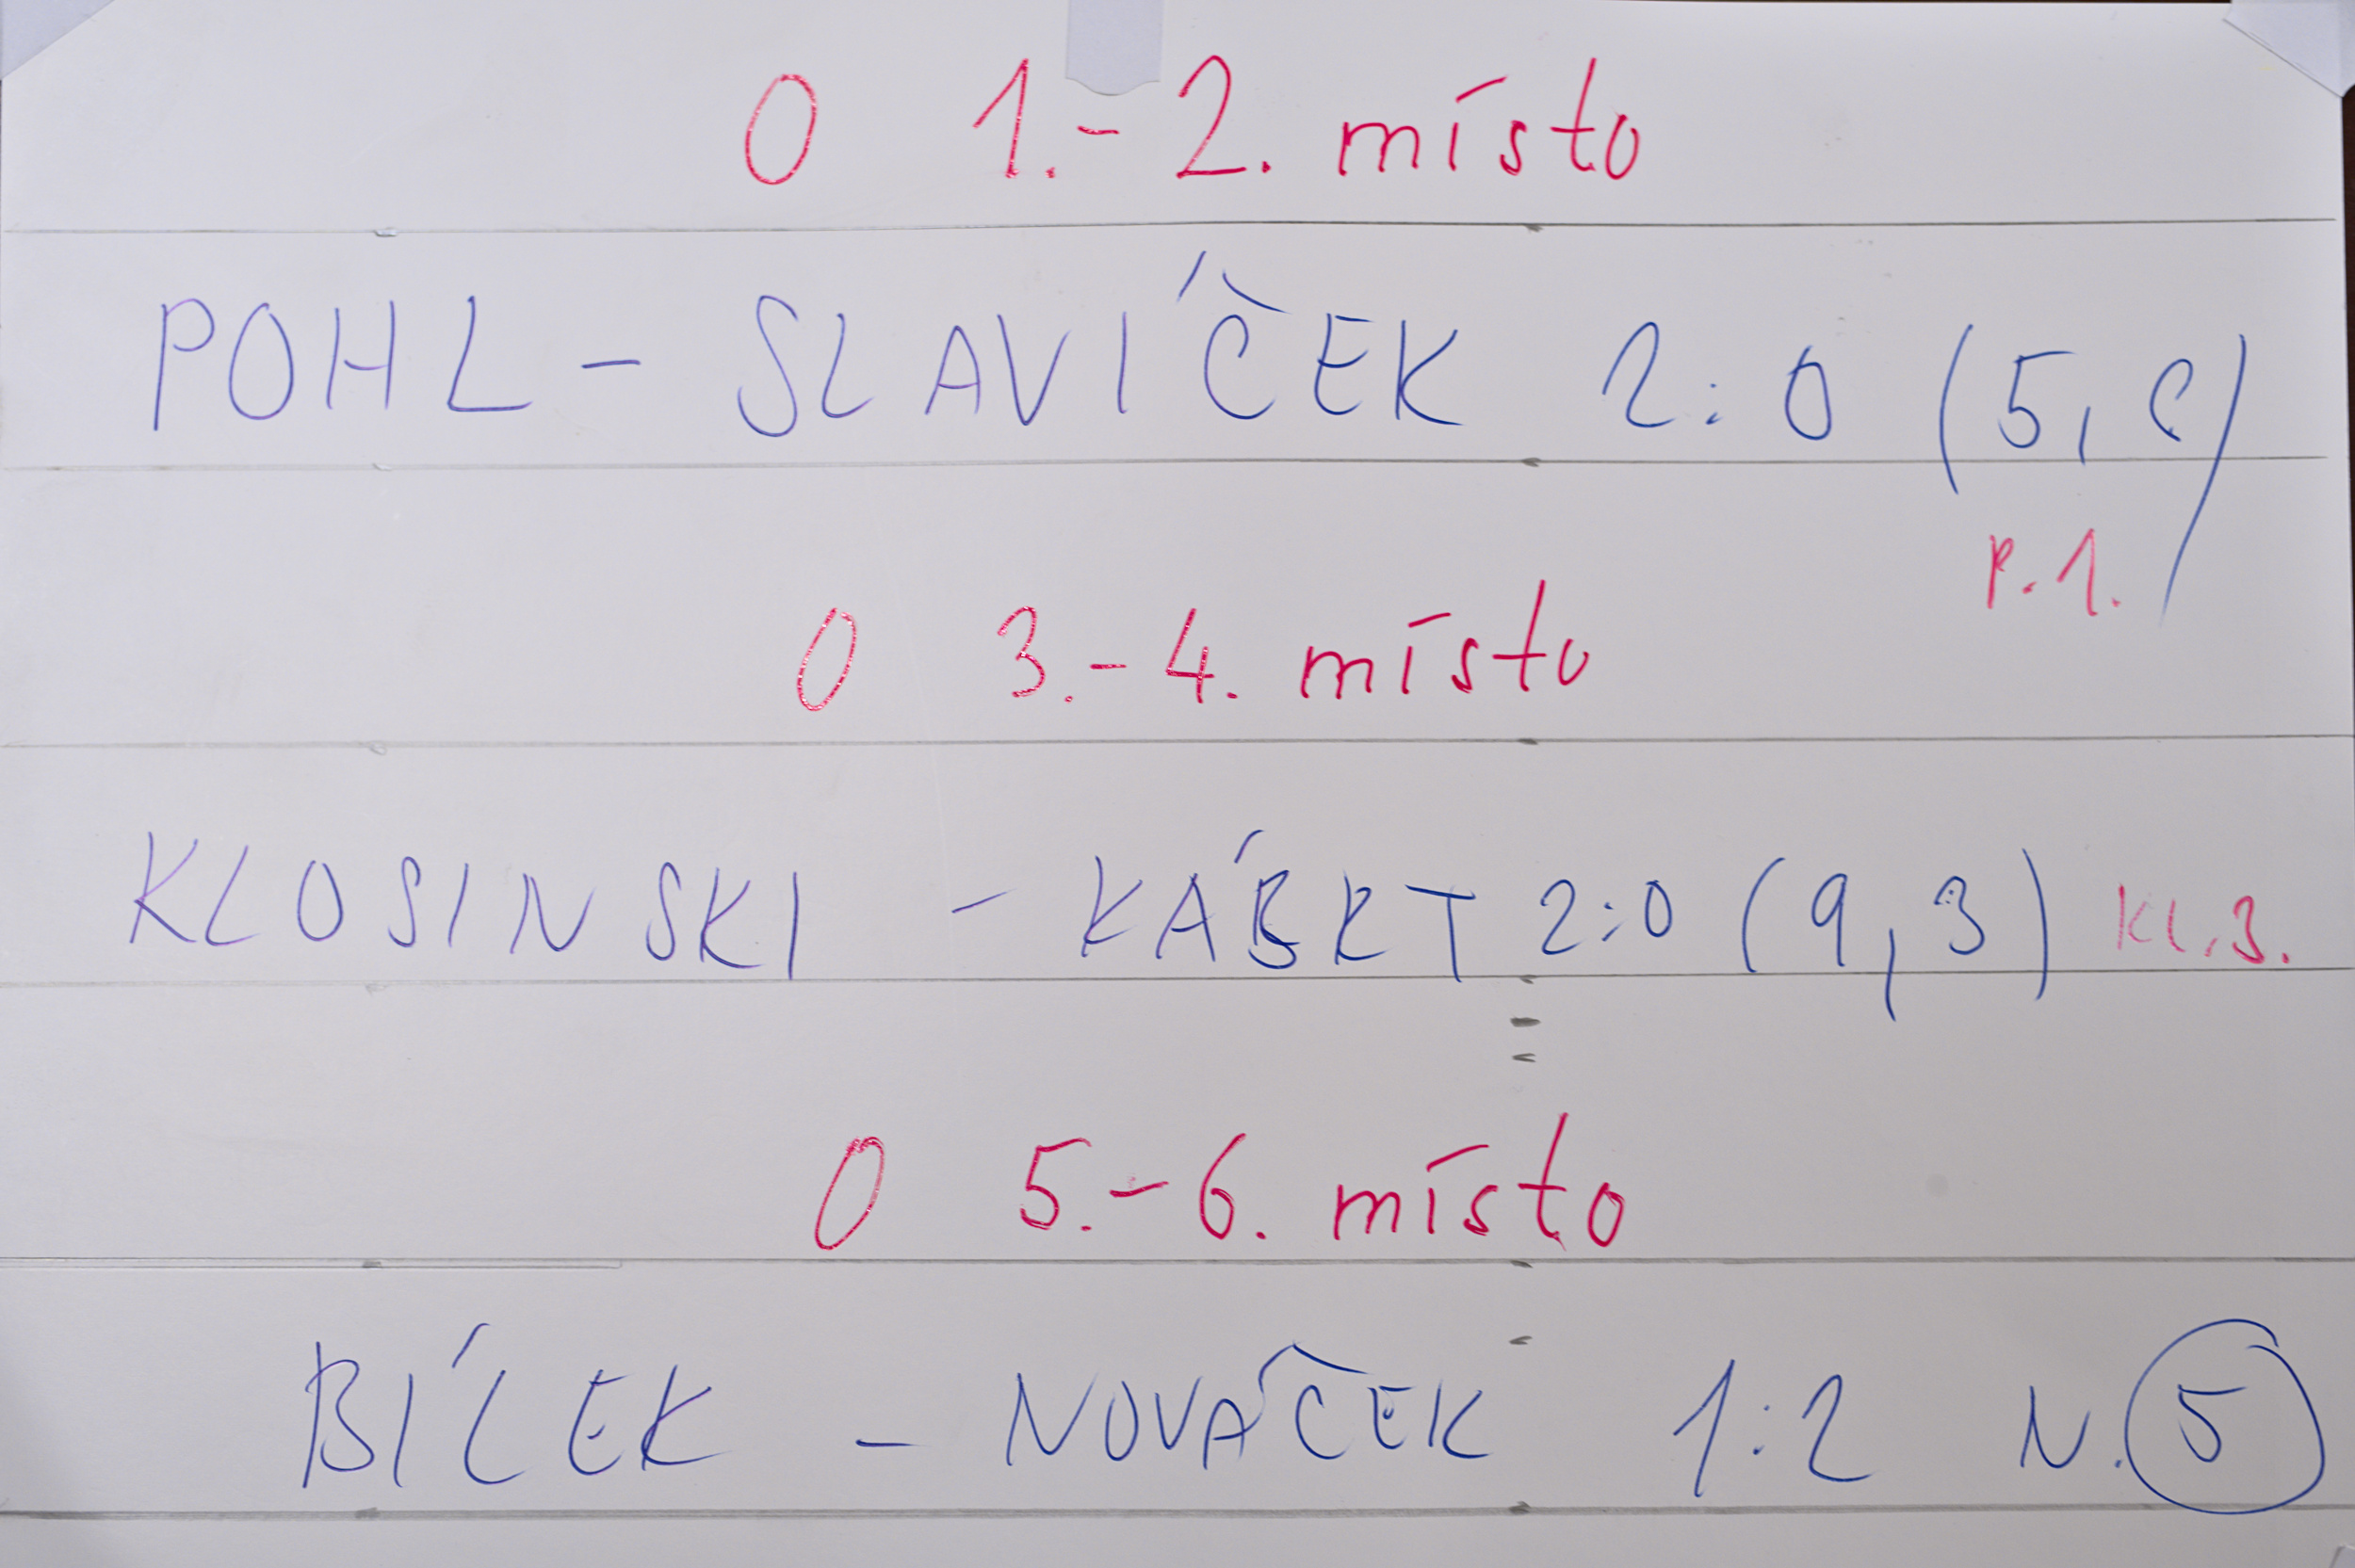 O 1.-2. místo
POHL - SLAVÍČEK 2:0 (5,
P.1.
O 3.-4. místo
KLOSINSKI - KÁBRT 2:0 (9,3) KL.3.
O 5.-6. místo
BÍLEK - NOVÁČEK 1:2 N.5